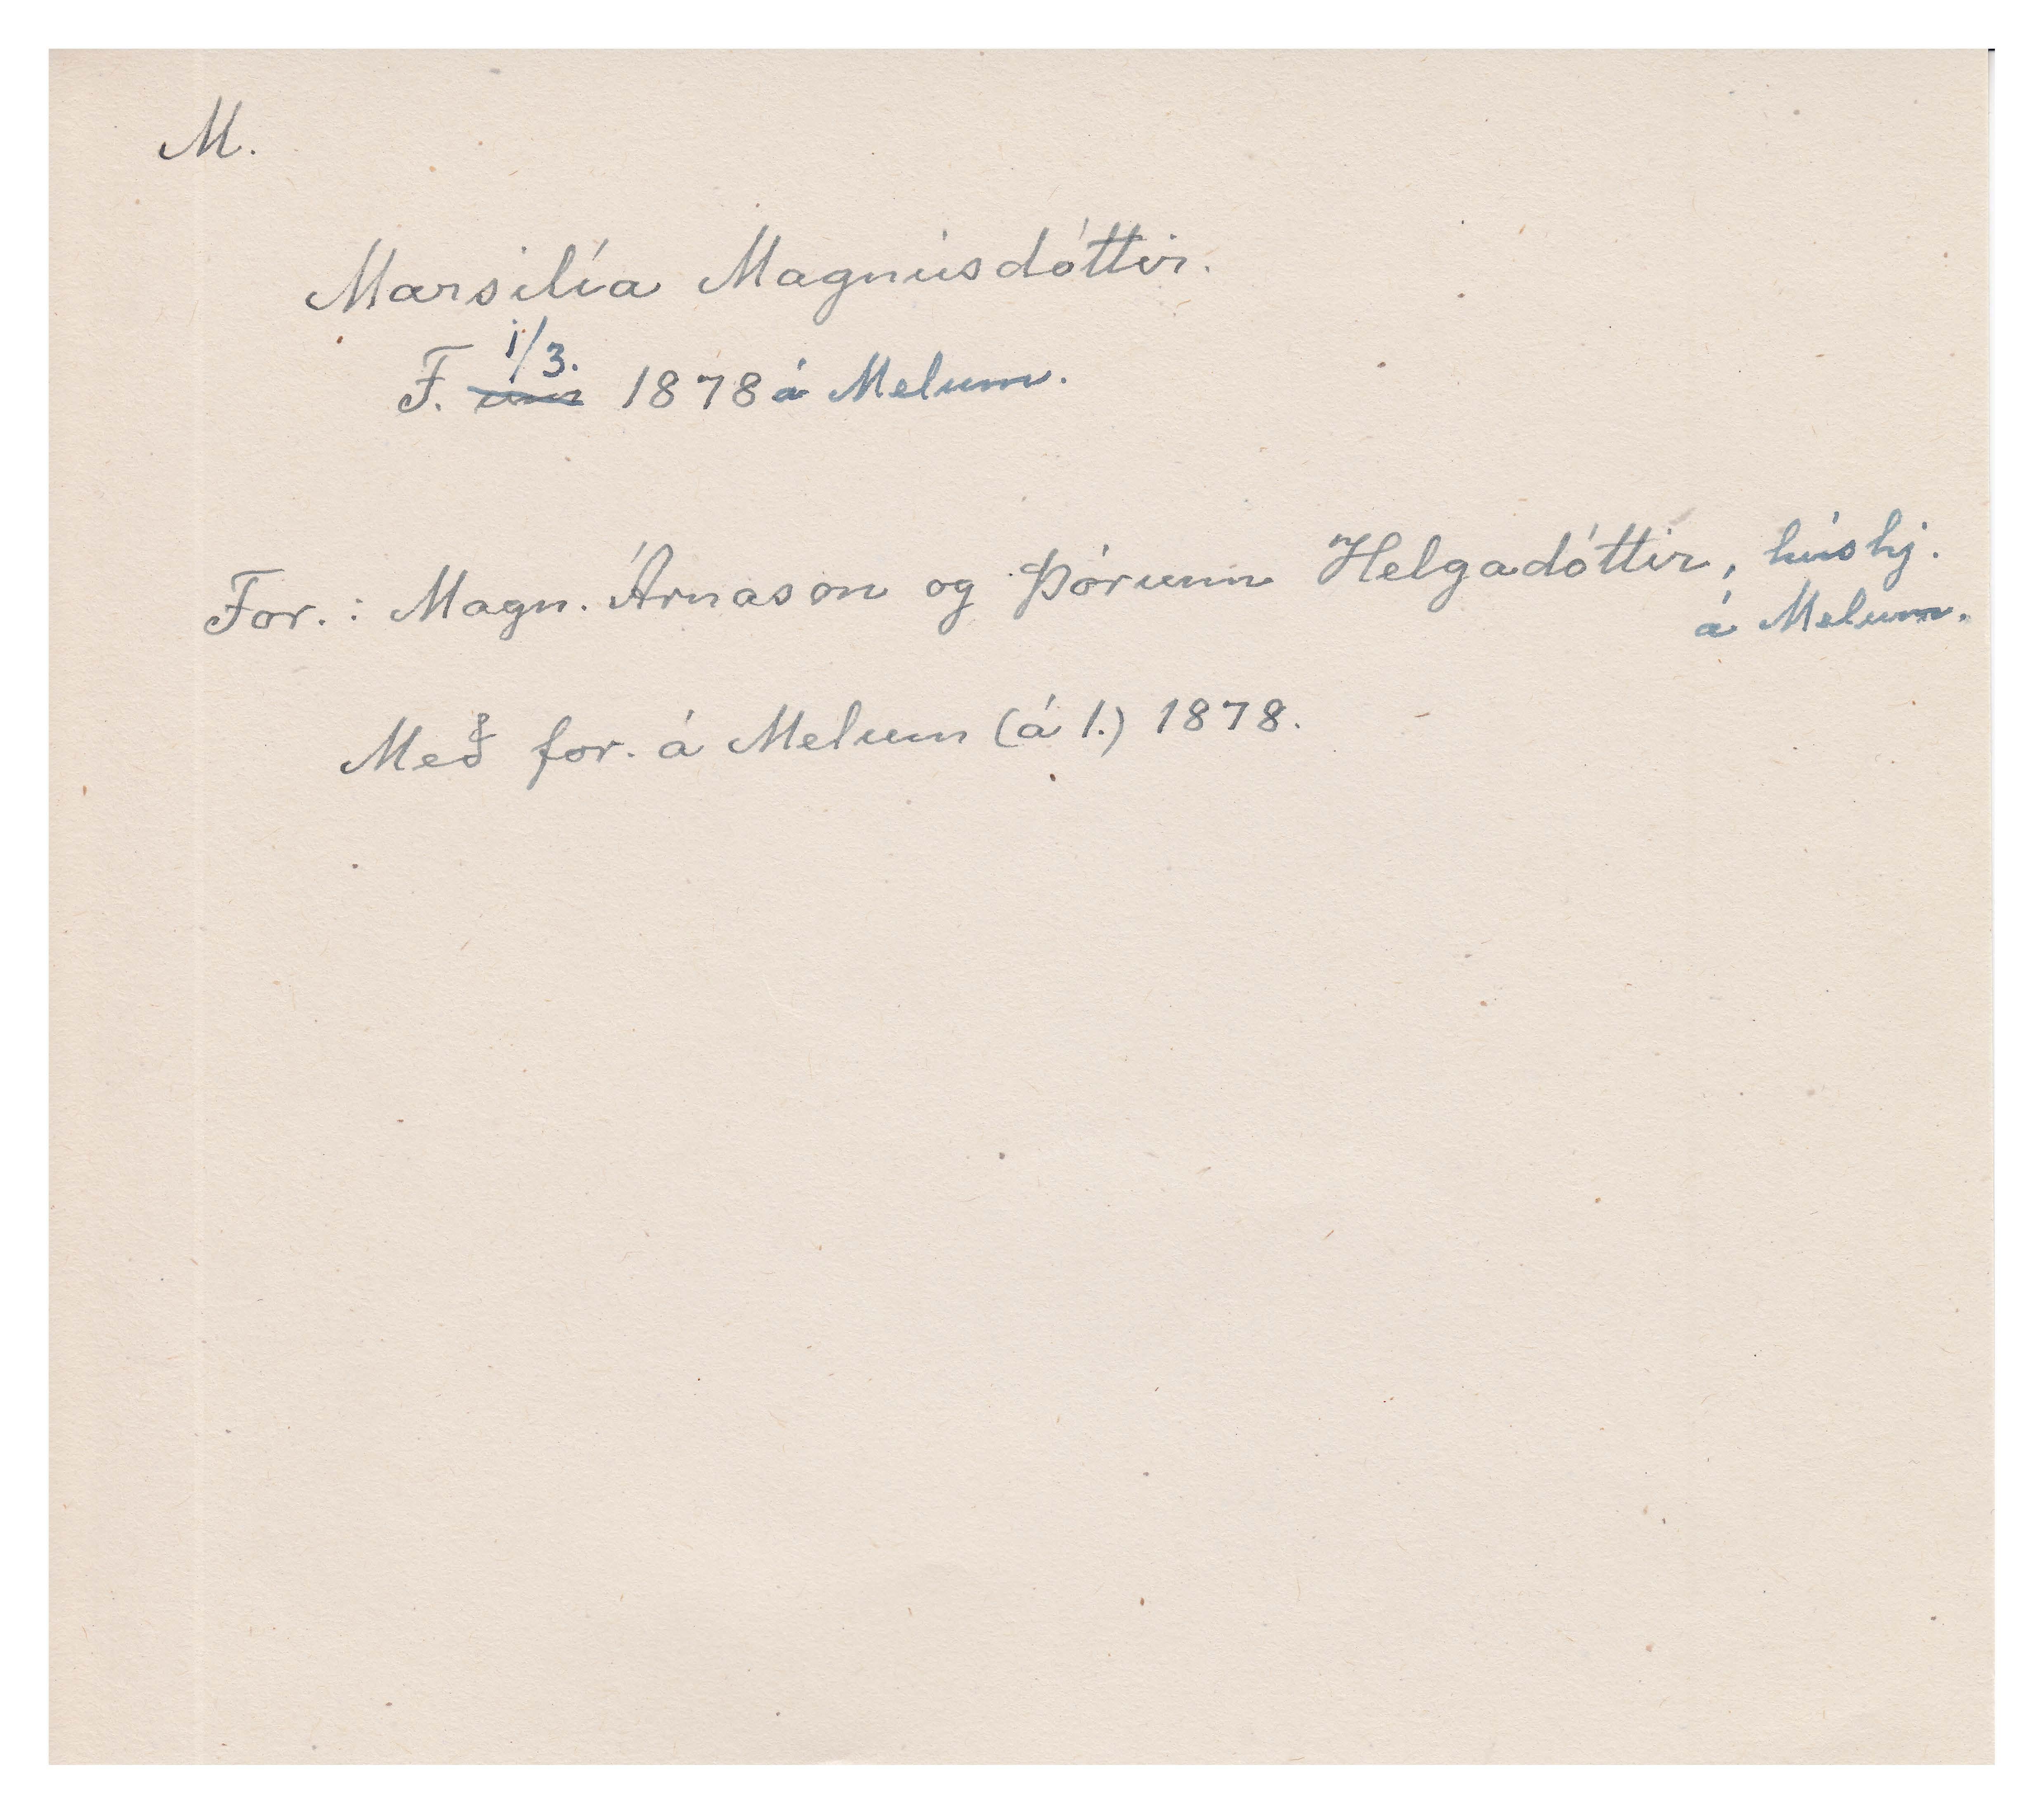 M.
Marsilía Magnúsdóttir.
F. 1/3. um 1878 á Melum.
For.: Magn. Árnason og Þórunn Helgadóttir, húshj.
á Melum.
Með for. á Melum (á 1.) 1878.